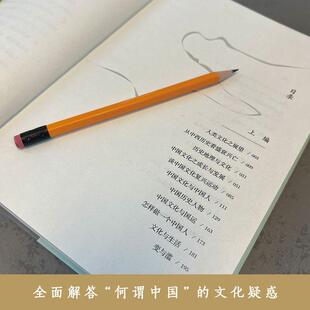 目录
上编
人类文化之展望 / 003
从中西历史看盛衰兴亡 / 031
历史地理与文化 / 051
中国文化之成长与发展 / 065
谈中国文化复兴运动 / 085
中国文化与中国人 / 111
中国历史人物 / 129
中国文化与国运 / 163
怎样做一个中国人 / 173
文化与生活 / 181
变与滥 / 195
全面解答“何谓中国”的文化疑惑